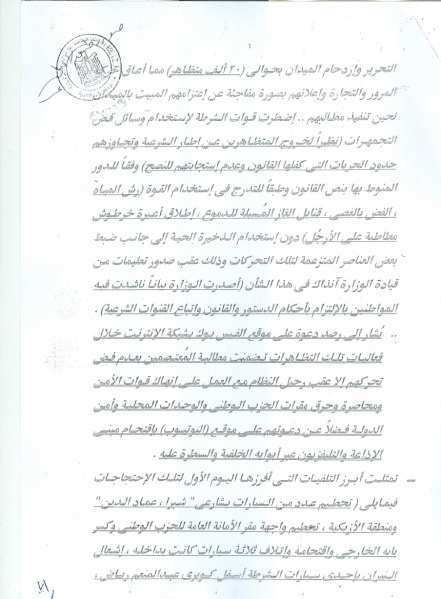 التحرير وإزدحام الميدان بحوالى (٢٠ ألف متظاهر) مما أعاق
المرور والتجارة وإعلانهم بصورة مفاجئة عن إعتزامهم المبيت بالميدان
لحين تنفيذ مطالبهم .. إضطرت قوات الشرطة لإستخدام وسائل فض
التجمهرات (نظراً لخروج المتظاهرين عن إطار الشرعية وتجاوزهم
حدود الحريات التى كفلها القانون وعدم إستجابتهم للنصح) وفقاً للدور
المنوط بها بنص القانون وطبقاً للتدرج فى إستخدام القوة (رش المياه
، الفض بالعصى ، قنابل الغاز المُسيلة للدموع ، إطلاق أعيرة خرطوش
مطاطية على الأرجُل) دون إستخدام الذخيرة الحية إلى جانب ضبط
بعض العناصر المتزعمة لتلك التحركات وذلك عقب صدور تعليمات من
قيادة الوزارة آنذاك فى هذا الشأن (أصدرت الوزارة بياناً ناشدت فيه
المواطنين بالإلتزام بأحكام الدستور والقانون وإتباع القنوات الشرعية) .
.. يُشار إلى رصد دعوة على موقع الفيس بوك بشبكة الإنترنت خلال
فعاليات تلك التظاهرات تضمنت مطالبة المُعتصمين بعدم فض
تحركهم إلا عقب رحيل النظام مع العمل على إنهاك قوات الأمن
ومحاصرة وحرق مقرات الحزب الوطنى والوحدات المحلية وأمن
الدولة فضلاً عن دعوتهم على موقع (اليوتيوب) بإقتحام مبنى
الإذاعة والتليفزيون عبر أبوابه الخلفية والسيطرة عليه .
— تمثلت أبرز التلفيات التى أفرزها اليوم الأول لتلك الإحتجاجات
فيمايلى (تحطيم عدد من السيارات بشارعى "شبرا ، عماد الدين"
ومنطقة الأزبكية ، تحطيم واجهة مقر الأمانة العامة للحزب الوطنى وكسر
بابه الخارجى وإقتحامه وإتلاف ثلاثة سيارات كانت بداخله ، إشعال
النيران بإحدى سيارات الشرطة أسفل كوبرى عبدالمنعم رياض ،